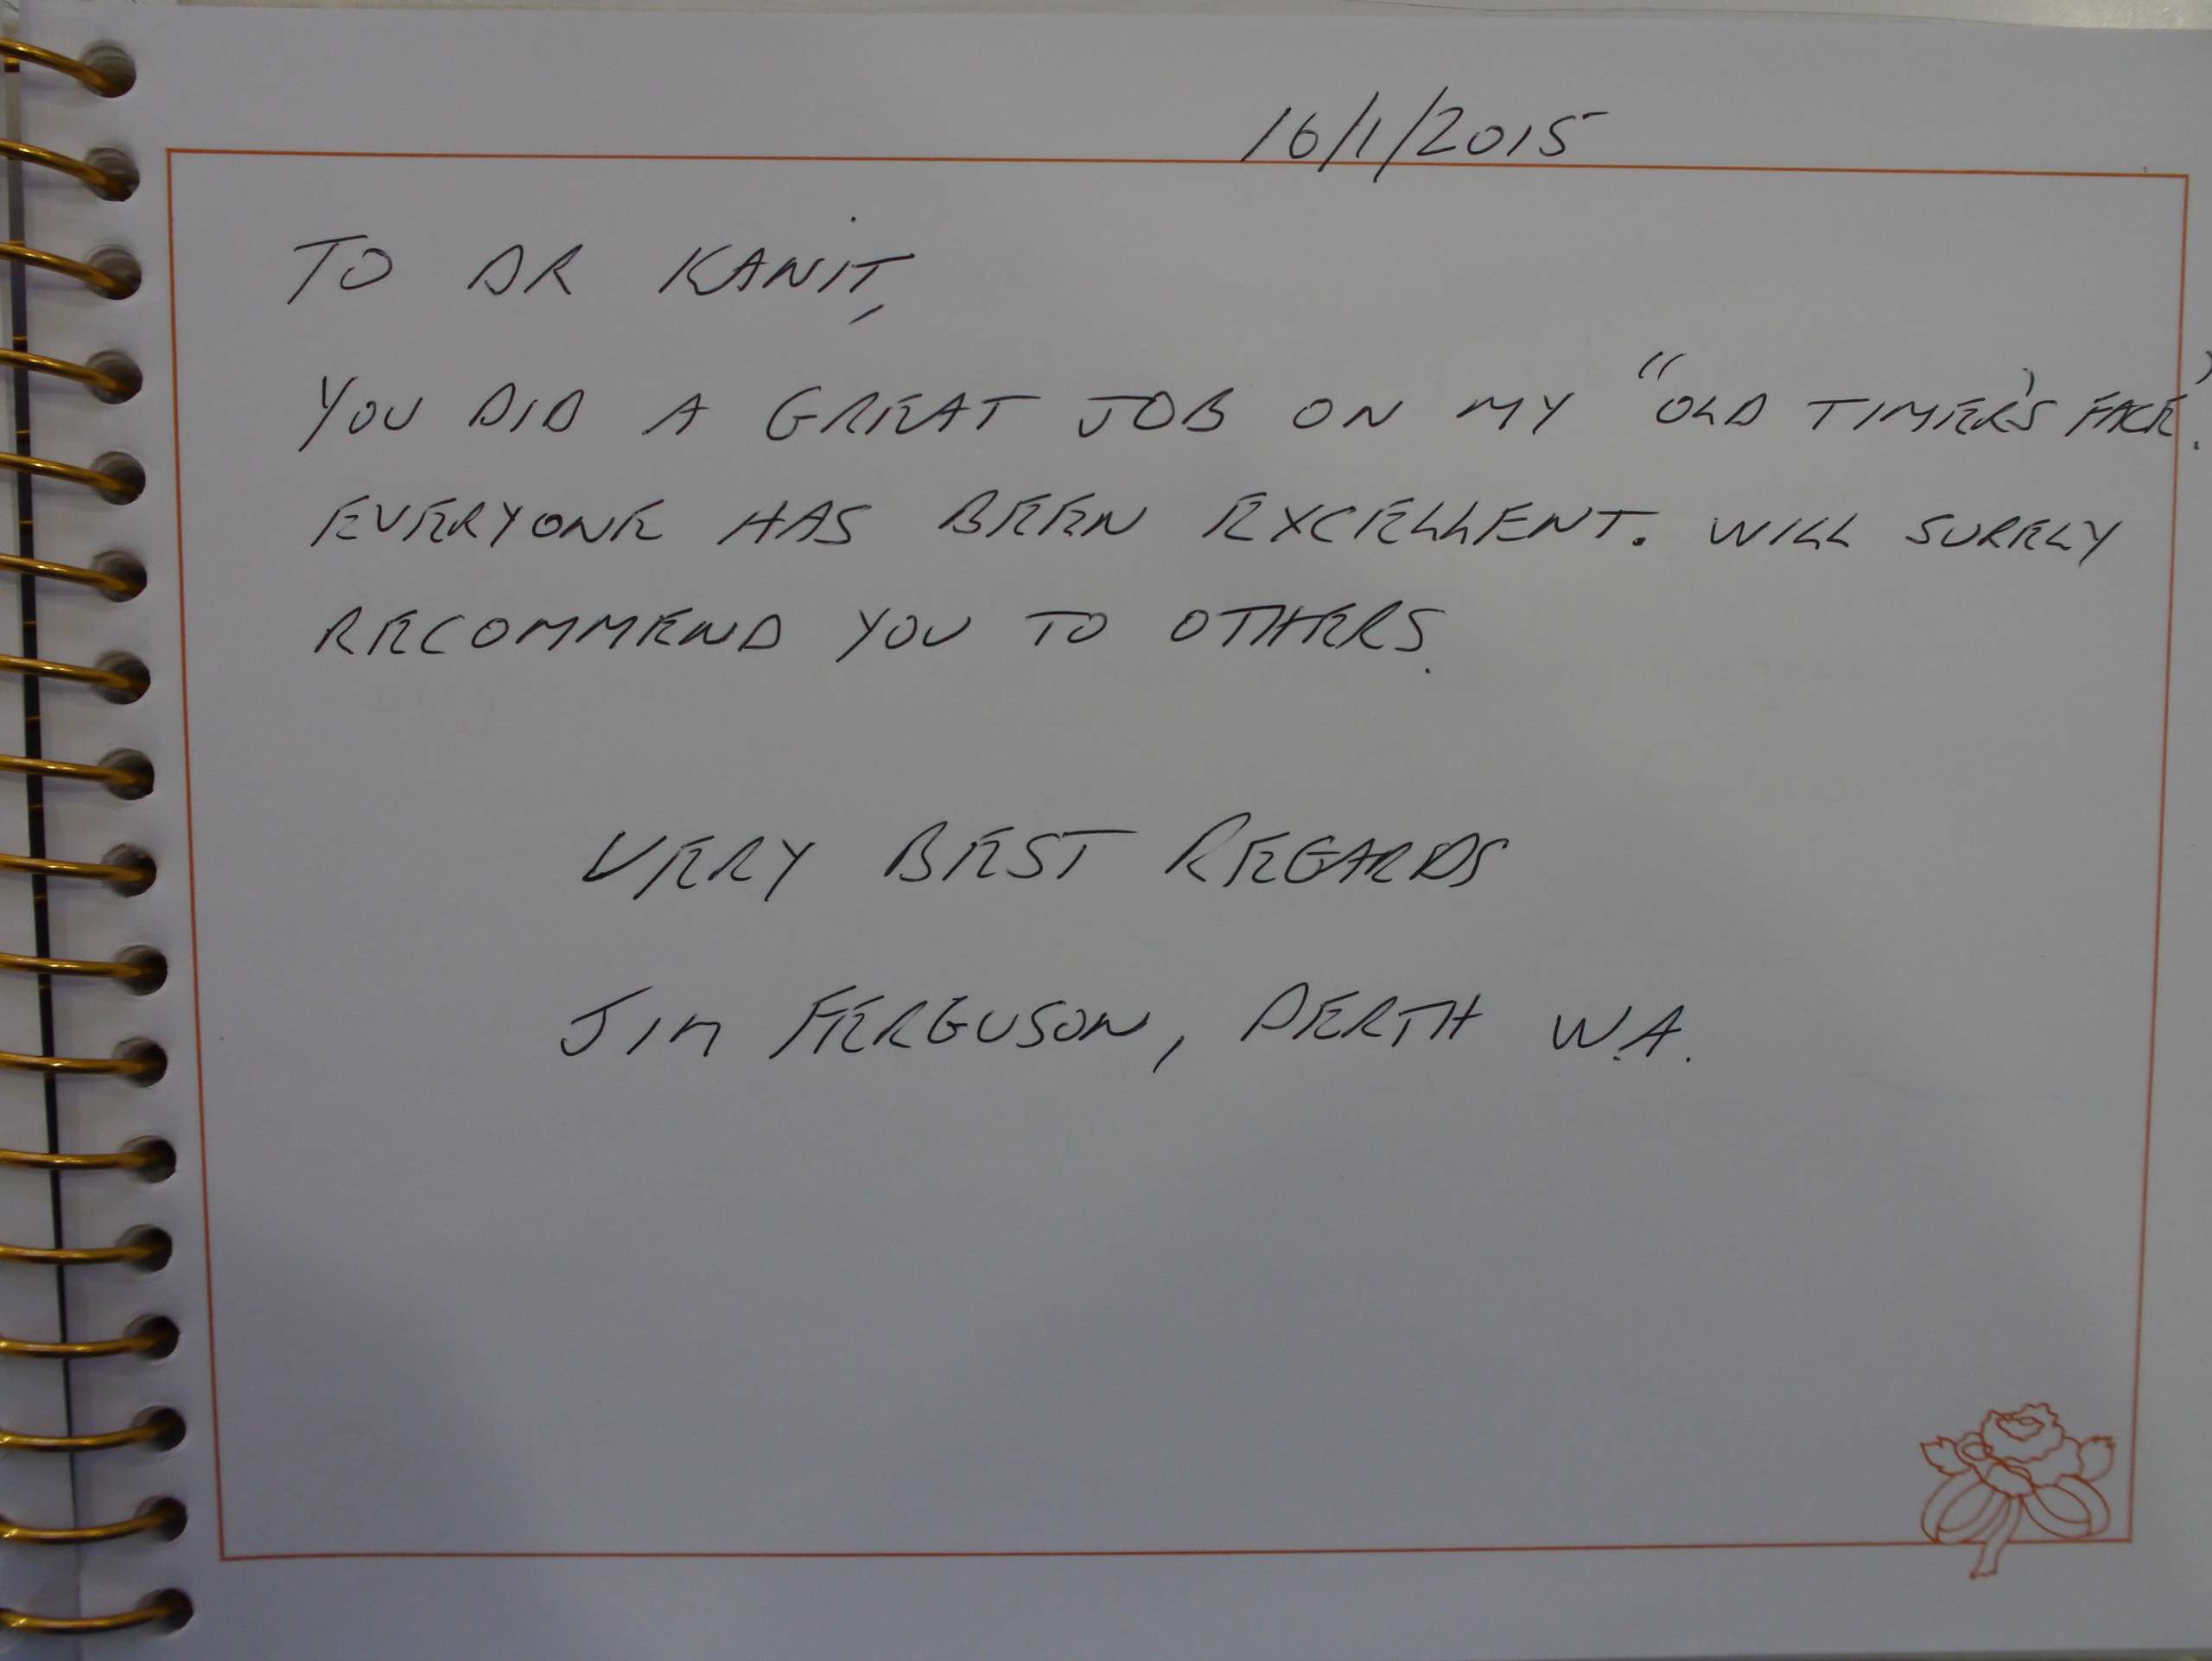 16/1/2015
TO DR KANIT,
YOU DID A GREAT JOB ON MY "OLD TIMER'S FACE".
EVERYONE HAS BEEN EXCELLENT. WILL SURELY
RECOMMEND YOU TO OTHERS.
VERY BEST REGARDS
JIM FERGUSON, PERTH W.A.